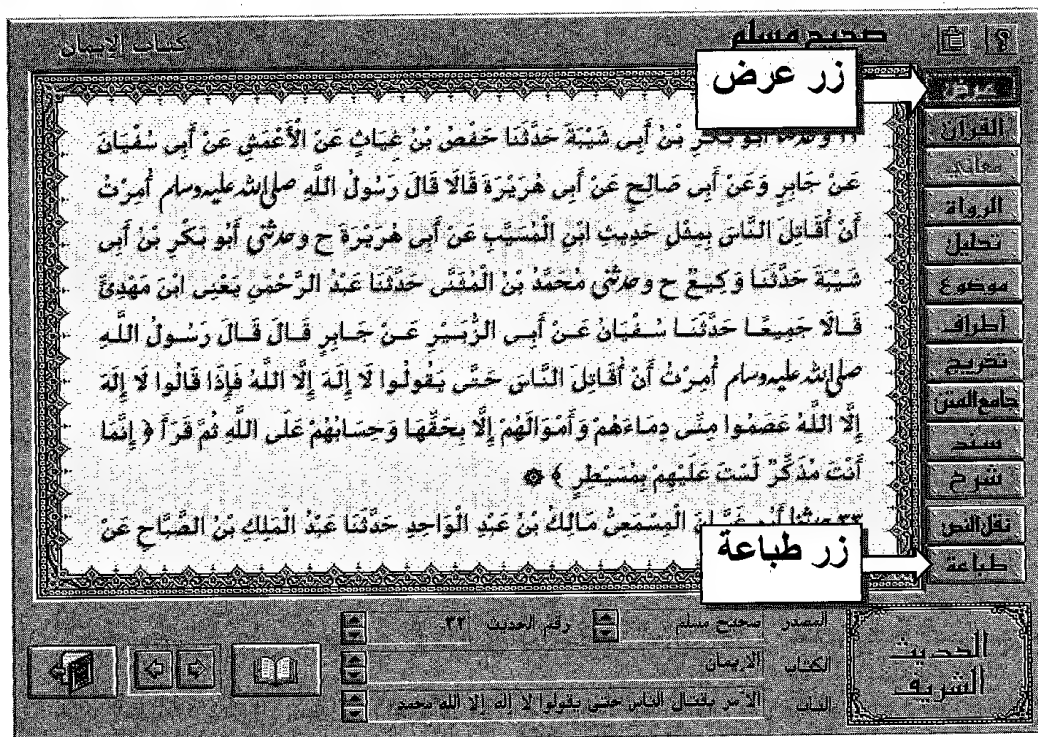 صحيح مسلم
كتاب الإيمان
زر عرض
عرض
القرآن
معاني
الرواة
تحليل
موضوع
أطراف
تخريج
جامع المتن
سند
شرح
نقل النص
طباعة
أَبُو بَكْرِ بْنُ أَبِي شَيْبَةَ حَدَّثَنَا حَفْصُ بْنُ غِيَاثٍ عَنْ الْأَعْمَشِ عَنْ أَبِي سُفْيَانَ
عَنْ جَابِرٍ وَعَنْ أَبِي صَالِحٍ عَنْ أَبِي هُرَيْرَةَ قَالَا قَالَ رَسُولُ اللَّهِ صلى الله عليه وسلم أُمِرْتُ
أَنْ أُقَاتِلَ النَّاسَ بِمِثْلِ حَدِيثِ ابْنِ الْمُسَيَّبِ عَنْ أَبِي هُرَيْرَةَ ح و حدثني أَبُو بَكْرِ بْنُ أَبِي
شَيْبَةَ حَدَّثَنَا وَكِيعٌ ح و حدثني مُحَمَّدُ بْنُ الْمُثَنَّى حَدَّثَنَا عَبْدُ الرَّحْمَنِ يَعْنِي ابْنَ مَهْدِيٍّ
قَالَا جَمِيعًا حَدَّثَنَا سُفْيَانُ عَنْ أَبِي الزُّبَيْرِ عَنْ جَابِرٍ قَالَ قَالَ رَسُولُ اللَّهِ
صلى الله عليه وسلم أُمِرْتُ أَنْ أُقَاتِلَ النَّاسَ حَتَّى يَقُولُوا لَا إِلَهَ إِلَّا اللَّهُ فَإِذَا قَالُوا لَا إِلَهَ
إِلَّا اللَّهُ عَصَمُوا مِنِّي دِمَاءَهُمْ وَأَمْوَالَهُمْ إِلَّا بِحَقِّهَا وَحِسَابُهُمْ عَلَى اللَّهِ ثُمَّ قَرَأَ ﴿ إِنَّمَا
أَنْتَ مُذَكِّرٌ لَسْتَ عَلَيْهِمْ بِمُسَيْطِرٍ ﴾
٣٣ حدثنا أَبُو غَسَّانَ الْمِسْمَعِيُّ مَالِكُ بْنُ عَبْدِ الْوَاحِدِ حَدَّثَنَا عَبْدُ الْمَلِكِ بْنُ الصَّبَّاحِ عَنْ
زر طباعة
المصدر صحيح مسلم رقم الحديث ٣٢
الكتاب الإيمان
الباب الأمر بقتال الناس حتى يقولوا لا إله إلا الله محمد
الحديث
الشريف